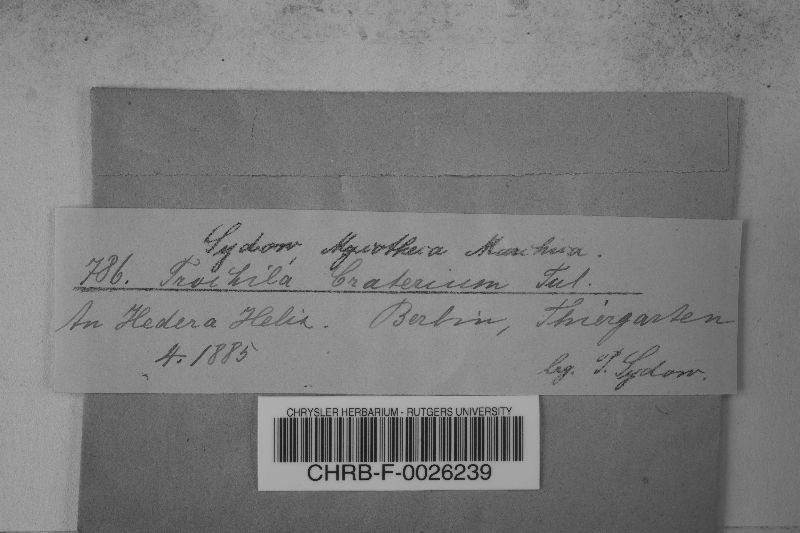 Sydow, Mycotheca Marchica.
786. Trochila Craterium Tul.
An Hedera Helix. Berlin, Thiergarten
4. 1885
leg. P. Sydow.
CHRYSLER HERBARIUM - RUTGERS UNIVERSITY
CHRB-F-0026239